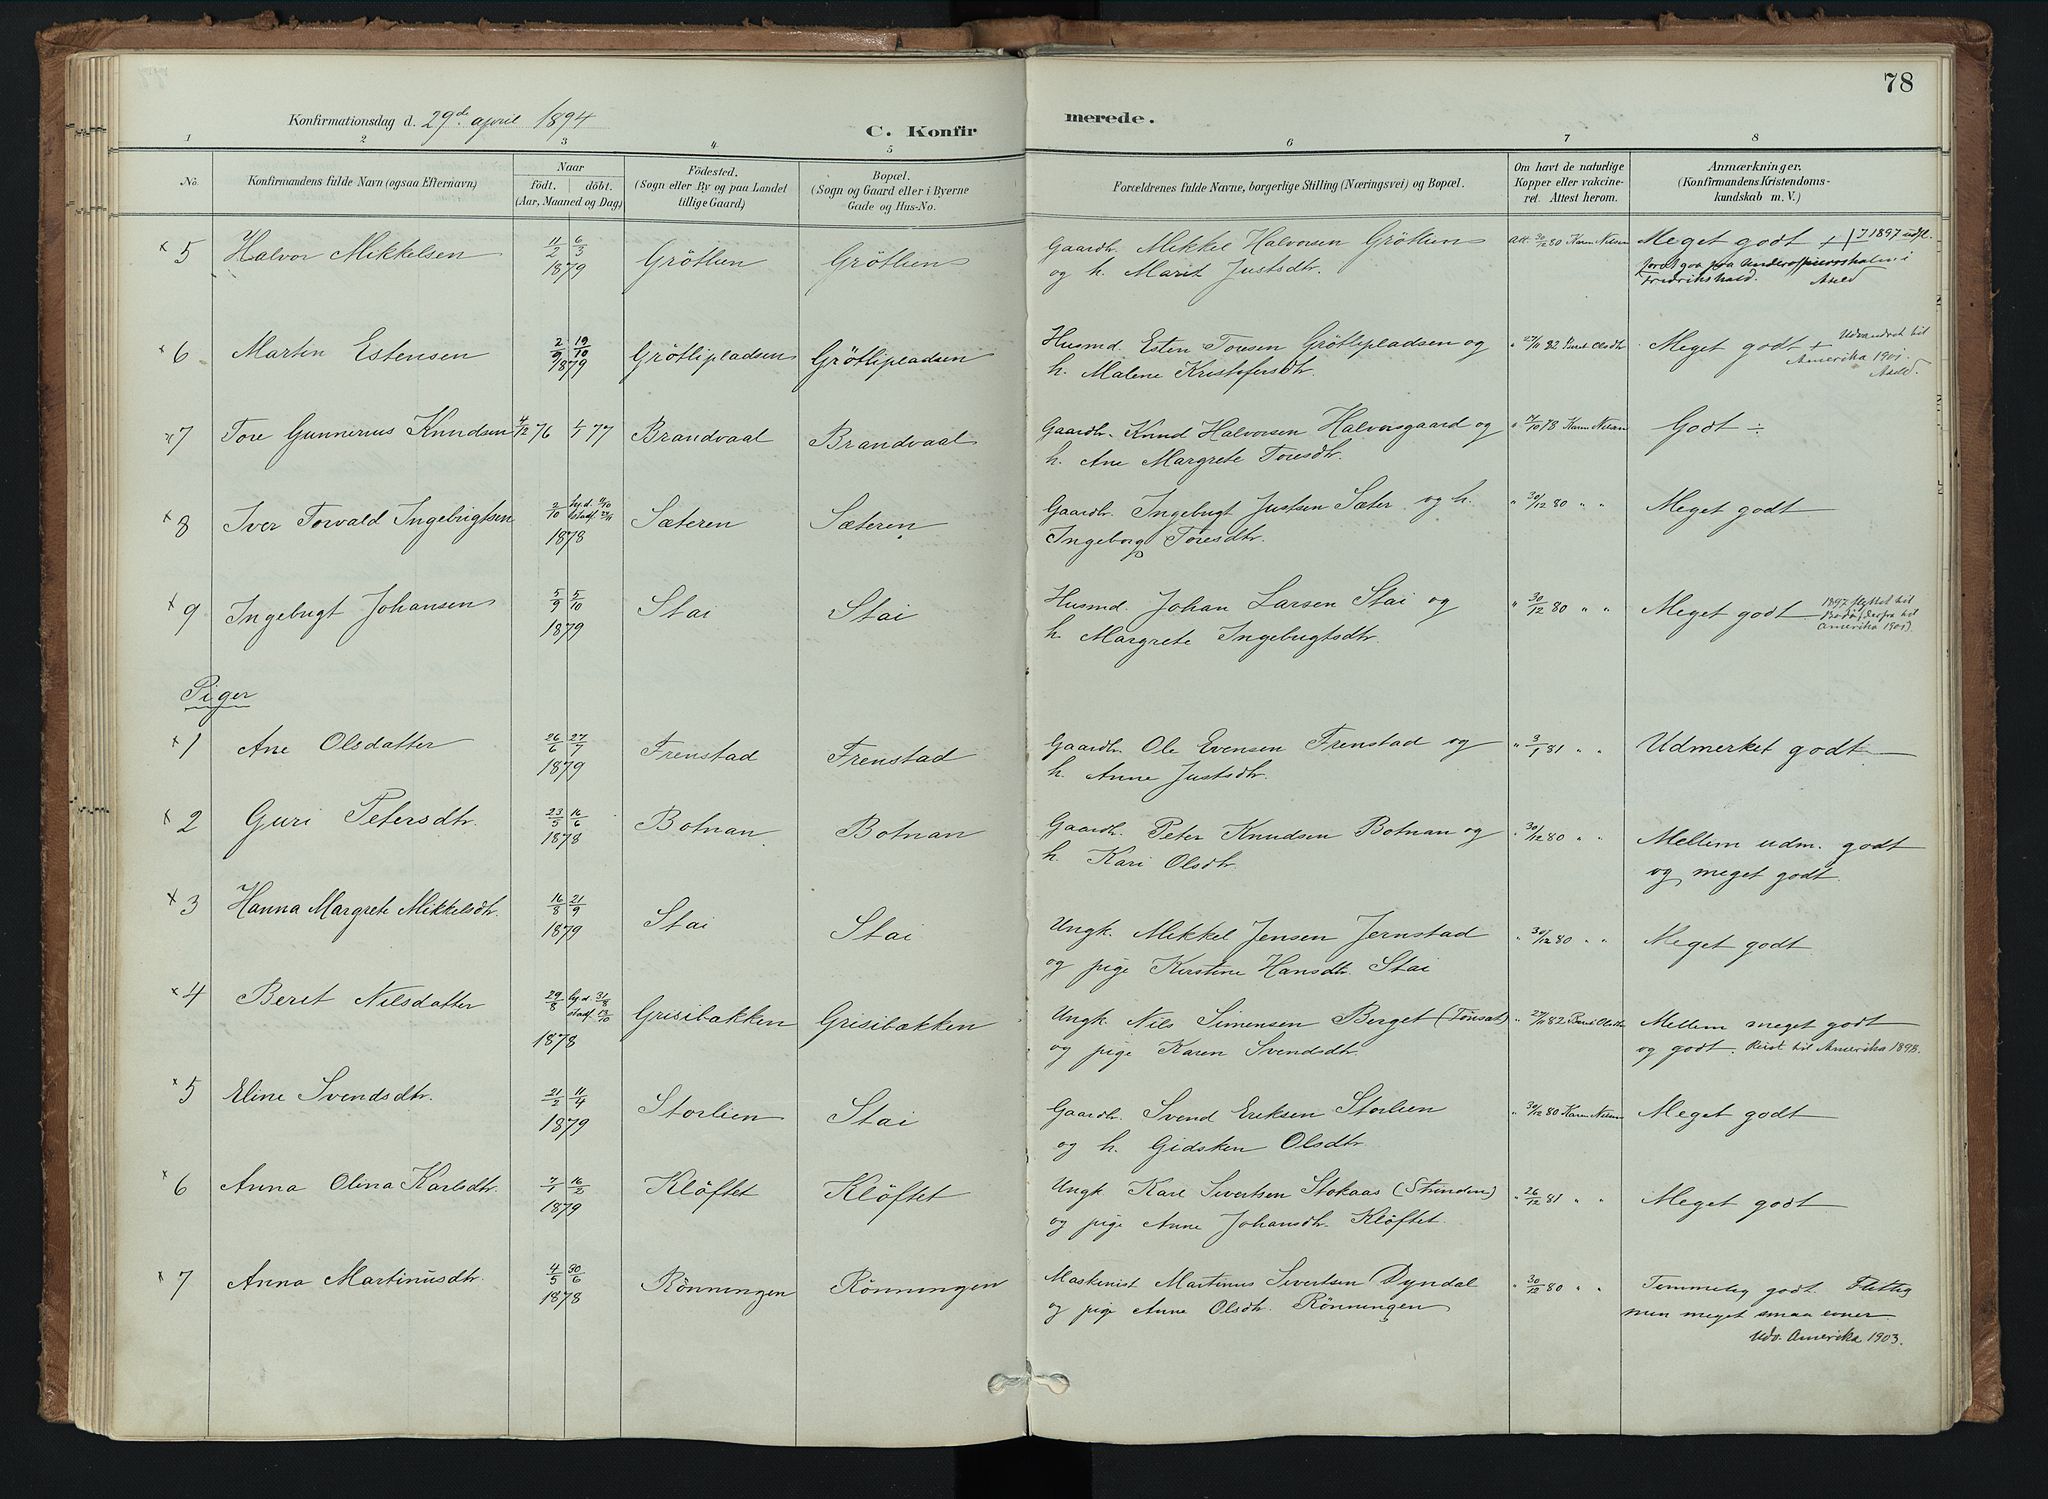 78
Konfirmationsdag d. 29de april 1894
C. Konfir merede.
1 2 3 4 5 6 7 8
No. Konfirmandens fulde Navn (ogsaa Efternavn) Naar födt. döbt. (Aar, Maaned og Dag) Födested. (Sogn eller By og paa Landet tillige Gaard) Bopæl. (Sogn og Gaard eller i Byerne Gade og Hus-No. Forældrenes fulde Navne, borgerlige Stilling (Næringsvei) og Bopæl. Om havt de naturlige Kopper eller vakcineret. Attest herom. Anmærkninger. (Konfirmandens Kristendomskundskab m. V.)
x 5 Halvor Mikkelsen 11/2 6/3 1879 Grötlien Grötlien Gaardbr. Mikkel Halvorsen Grötlien att. 30/12 80 Karen Nilsen Meget godt + I 1897 udfl.
og h. Marit Justsdtr. Fredrikshald. Aseld
x 6 Martin Estensen 2/9 19/10 1879 Grötlipladsen Grötlipladsen Husmd. Esten Toresen Grötlipladsen og " 27/11 82 Beret Olsdtr. Meget godt + Udvandret til
h. Malene Kristofersdtr. Amerika 1901. Aseld.
x 7 Tore Gunnerius Knudsen 4/12 76 1/1 77 Brandvaal Brandvaal Gaardbr. Knud Halvorsen Halvorsgaard og " 7/10 78 Karen Nilsen Godt ÷
h. Ane Margrete Toresdtr.
x 8 Iver Torvald Ingebrigtsen 2/10 hj.d. 11/10 stadf. 24/11 1878 Sæteren Sæteren Gaardbr. Ingebrigt Justsen Sæter og h. " 30/12 80 " " Meget godt
Ingeborg Toresdtr.
x 9 Ingebrigt Johansen 5/9 5/10 1879 Stai Stai Husmd. Johan Larsen Stai og " 30/12 80 " " Meget godt 1897 flyttet til
h. Margrete Ingebrigtsdtr. Bodö (derfra til
amerika 1901).
Piger
x 1 Ane Olsdatter 26/6 27/7 1879 Frenstad Frenstad Gaardbr. Ole Evensen Frenstad og " 3/1 81 " " Udmerket godt
h. Anne Justsdtr.
x 2 Guri Petersdtr. 23/5 16/6 1878 Botnan Botnan Gaardbr. Peter Knudsen Botnan og " 30/12 80 " " Mellem udm. godt
h. Kari Olsdtr. og meget godt.
x 3 Hanna Margrete Mikkelsdtr. 16/8 21/9 1879 Stai Stai Ungk. Mikkel Jensen Jernstad " 30/12 80 " " Meget godt
og pige Kirstine Hansdtr. Stai
x 4 Beret Nilsdatter 29/8 hj.d. 31/8 stadf. 13/10 1878 Grisibakken Grisibakken Ungk. Nils Simensen Berget (Tönset) " 27/11 82 Beret Olsdtr. Mellem meget godt
og pige Karen Svendsdtr. og godt. Reist til Amerika 1895.
x 5 Eline Svendsdtr. 21/2 11/4 1879 Storlien Stai Gaardbr. Svend Eriksen Storlien " 30/12 80 Karen Nilsen Meget godt
og h. Gidsken Olsdtr.
x 6 Anna Olina Karlsdtr. 7/1 16/2 1879 Klöftet Klöftet Ungk. Karl Sivertsen Stokaas (Strinden) " 26/12 81 " " Meget godt
og pige Anne Johansdtr. Klöftet.
x 7 Anna Martinusdtr. 4/5 30/6 1878 Rönningen Rönningen Maskinist Martinus Sivertsen Dyndal " 30/12 80 " " Temmelig godt. Flittig
og pige Anne Olsdtr. Rönningen men meget smaa evner.
Udv. Amerika 1903.